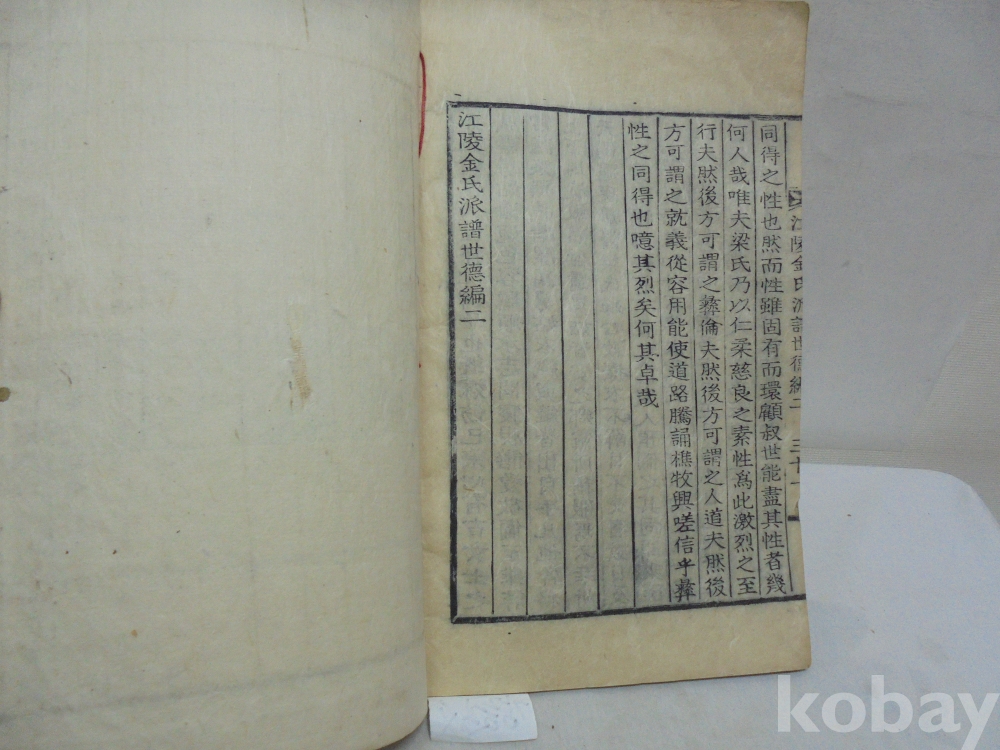 江陵金氏派譜世德編二 三十一
同得之性也然而性雖固有而環顧叔世能盡其性者幾
何人哉唯夫梁氏乃以仁柔慈良之素性爲此激烈之至
行夫然後方可謂之彜倫夫然後方可謂之人道夫然後
方可謂之就義從容用能使道路騰誦樵牧興嗟信乎彜
性之同得也噫其烈矣何其卓哉
江陵金氏派譜世德編二
kobay